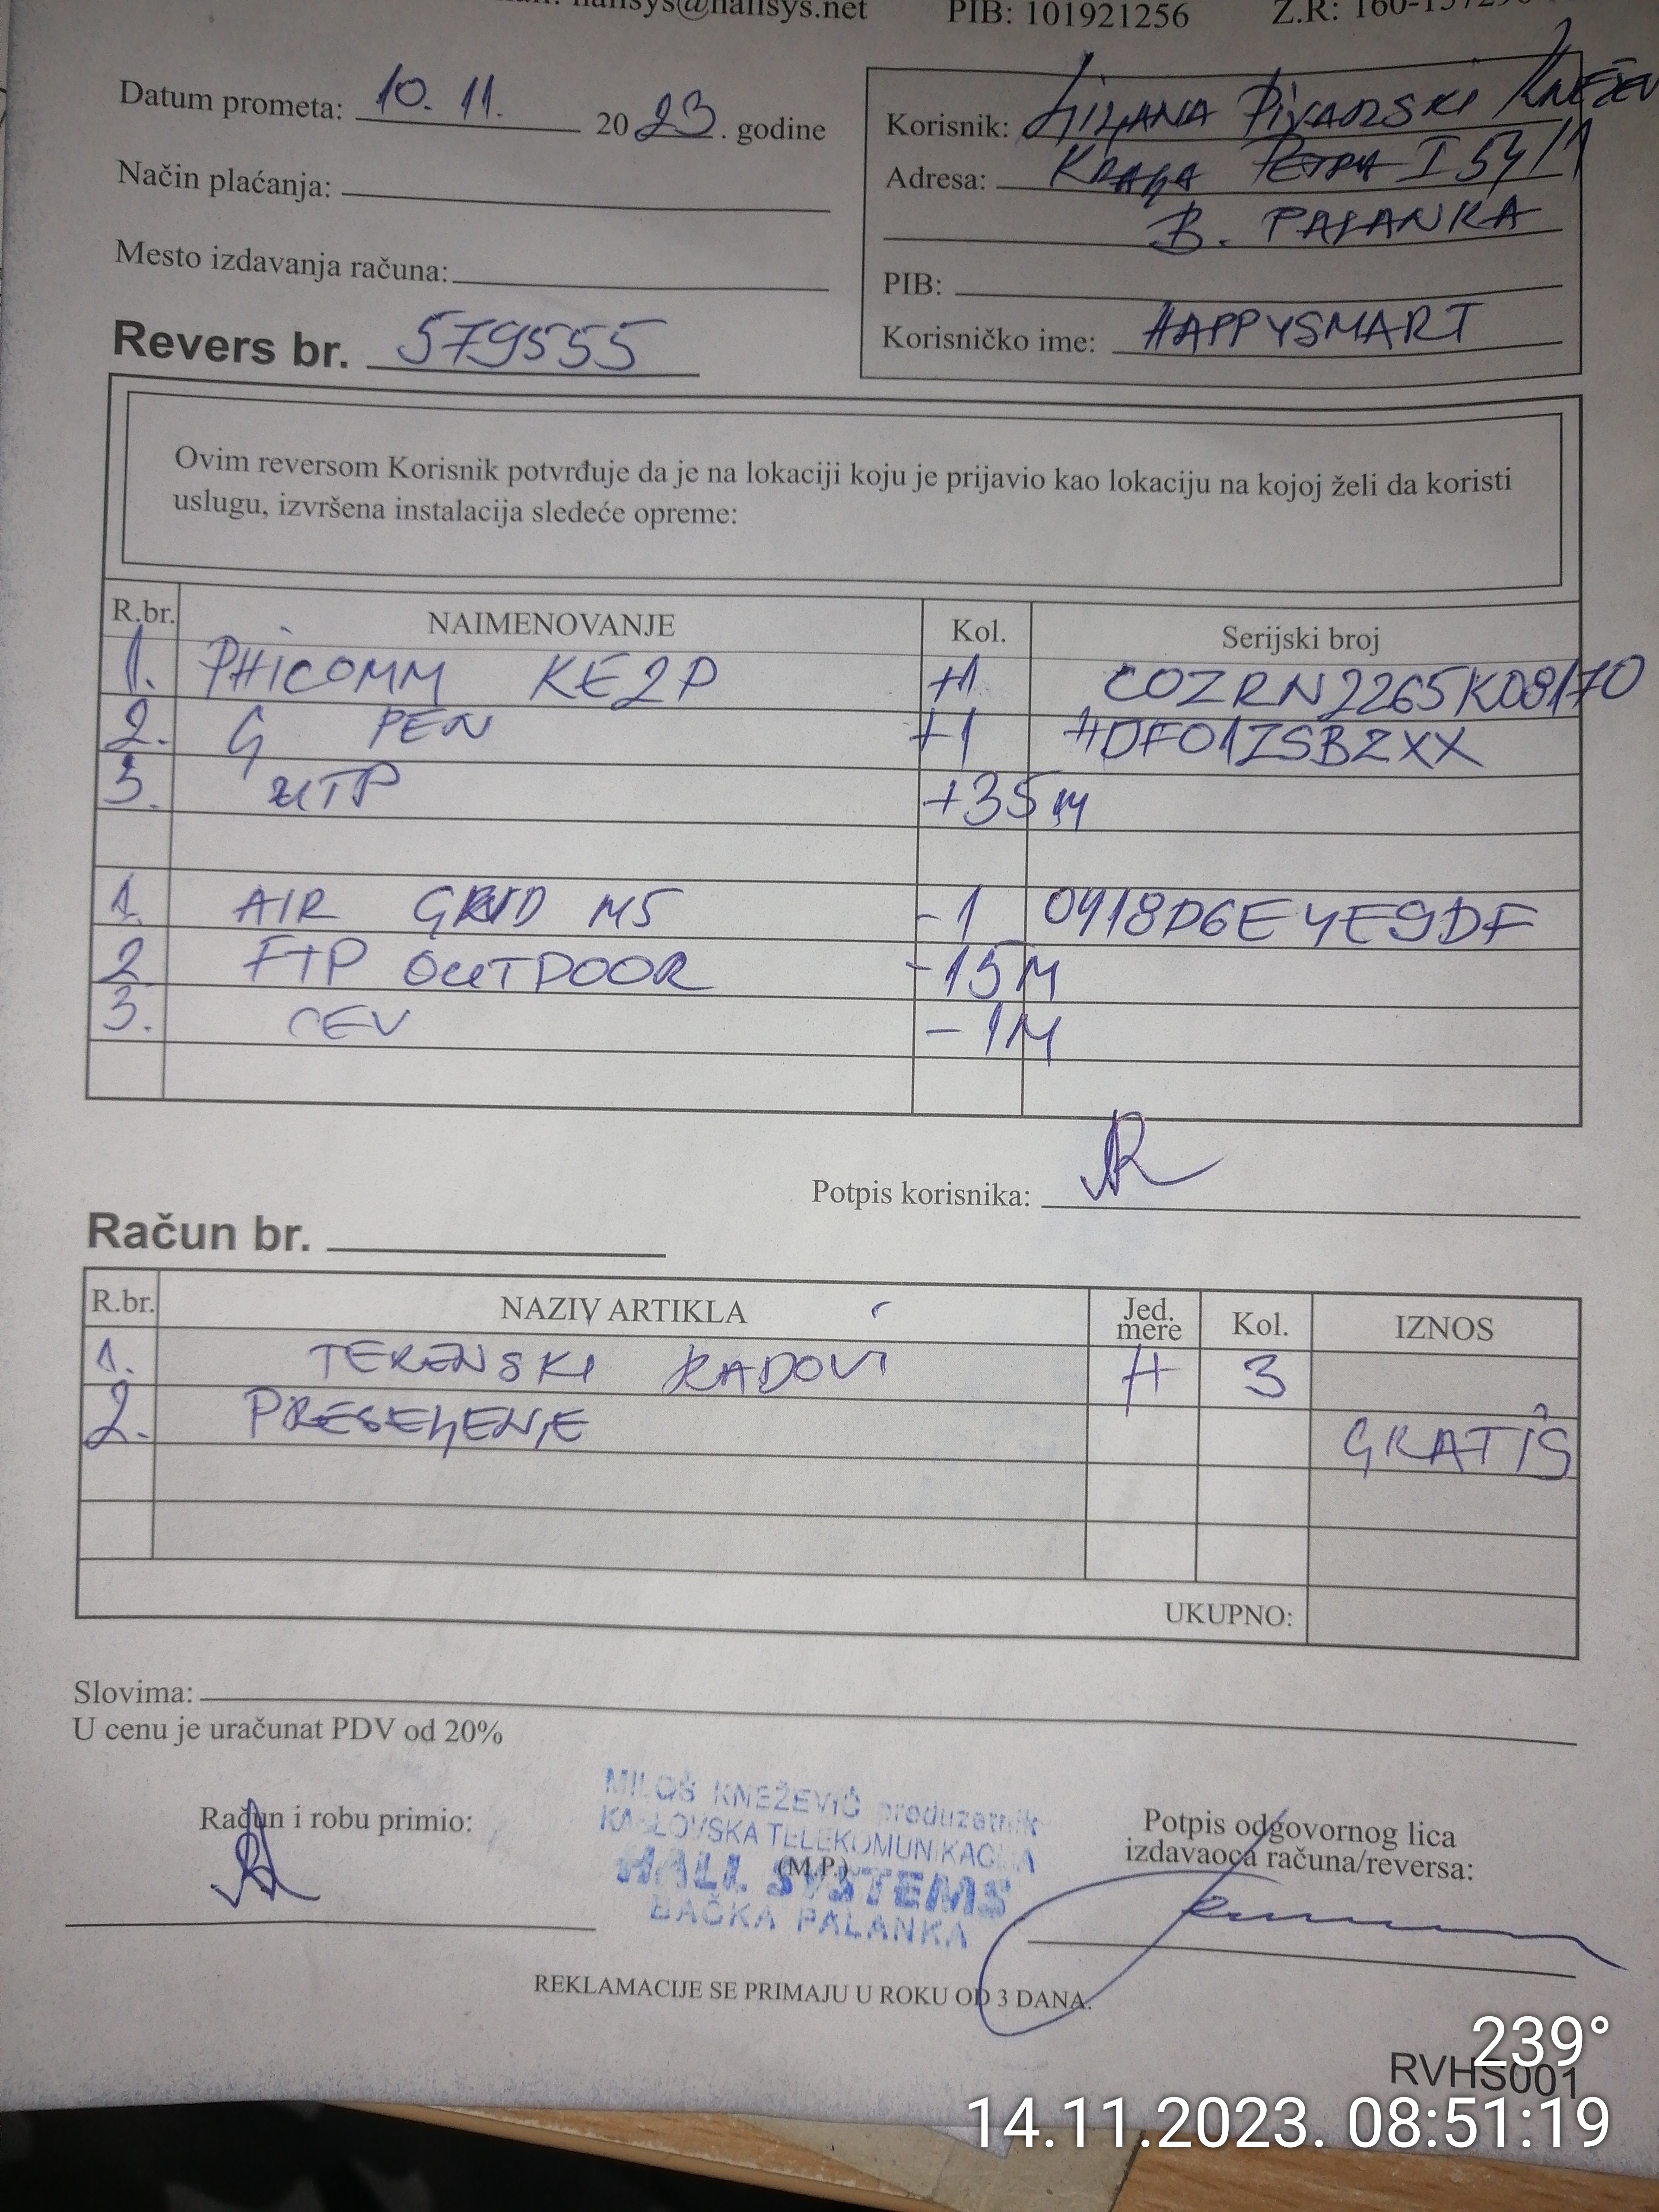 hallsys@hallsys.net PIB: 101921256 Z.R: 160-
Datum prometa: 10. 11. 2023. godine
Način plaćanja:
Mesto izdavanja računa:
Revers br. 579555
Korisnik: LJILJANA PIVARSKI KNEŽEV
Adresa: KRALJA PETRA I 54/1
B. PALANKA
PIB:
Korisničko ime: HAPPYSMART
Ovim reversom Korisnik potvrđuje da je na lokaciji koju je prijavio kao lokaciju na kojoj želi da koristi
uslugu, izvršena instalacija sledeće opreme:
R.br. NAIMENOVANJE Kol. Serijski broj
1. PHICOMM KE2P +1 COZRN2265K08170
2. G PEN +1 #DF01ZSBZXX
3. UTP +35M
1. AIR GRID M5 -1 0418D6E4E9DF
2 FTP OUTDOOR -15M
3. CEV -1M
Potpis korisnika:
Račun br.
R.br. NAZIV ARTIKLA Jed. mere Kol. IZNOS
1. TERENSKI RADOVI H 3
2. PRESELJENJE GRATIS
UKUPNO:
Slovima:
U cenu je uračunat PDV od 20%
Račun i robu primio:
MILOŠ KNEŽEVIĆ preduzetnik
KABLOVSKA TELEKOMUNIKACIJA
(M.P.)
HALL SYSTEMS
BAČKA PALANKA
Potpis odgovornog lica
izdavaoca računa/reversa:
REKLAMACIJE SE PRIMAJU U ROKU OD 3 DANA.
239°
RVHS001
14.11.2023. 08:51:19